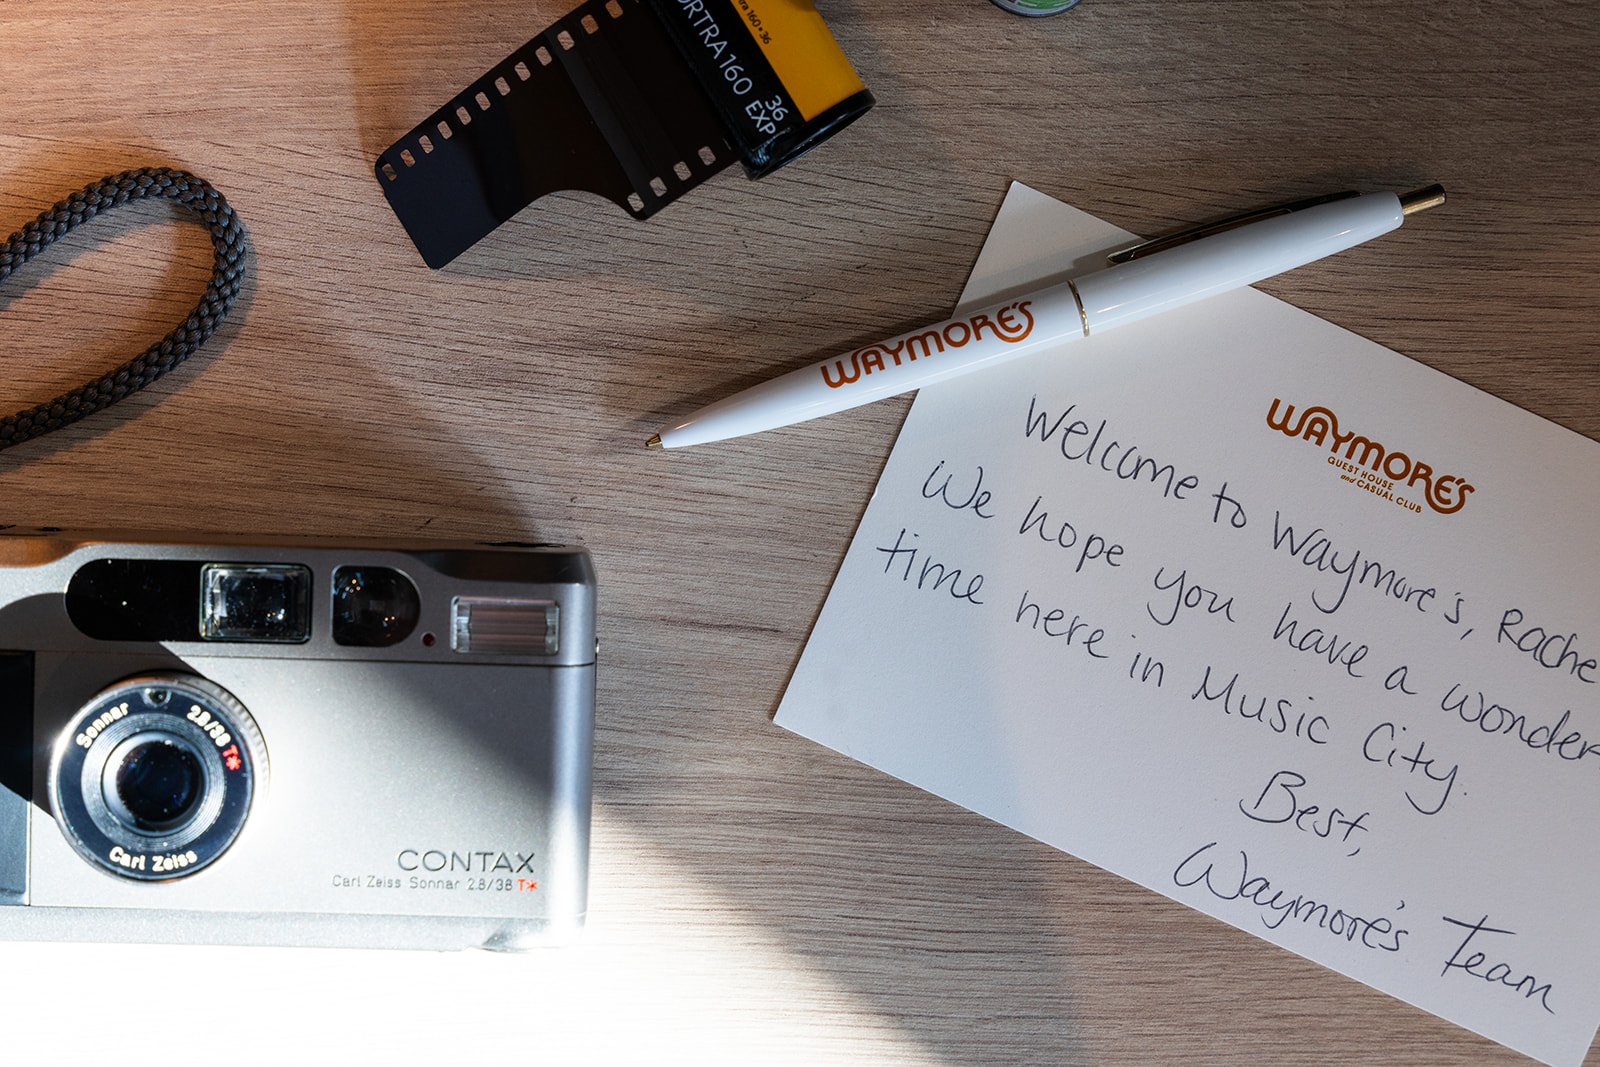 ORTRA 160
36
EXP
tra 160 • 36
WAYMORE'S
WAYMORE'S
GUEST HOUSE
and CASUAL CLUB
Welcome to Waymore's, Rache
We hope you have a wonder
time here in Music City.
Best,
Waymore's Team
Sonnar 2.8/38 T*
Carl Zeiss
CONTAX
Carl Zeiss Sonnar 2.8/38 T*